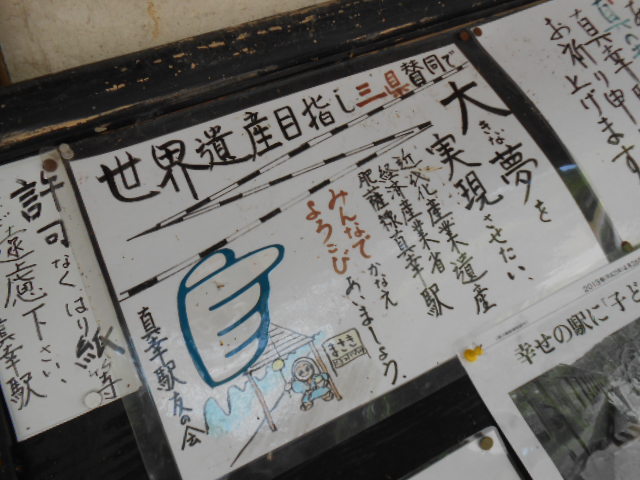 世界遺産目指し三県賛同で
大きな夢を
実現させたい
近代化産業遺産
経済産業省
肥薩線真幸駅
みんなで
よろこび
かなえ
あいましょう
まさき
真幸駅友の会
許可なくはり紙等
ご遠慮下さい
真幸駅
お祈り申し
上げます
幸せの駅に「子ど